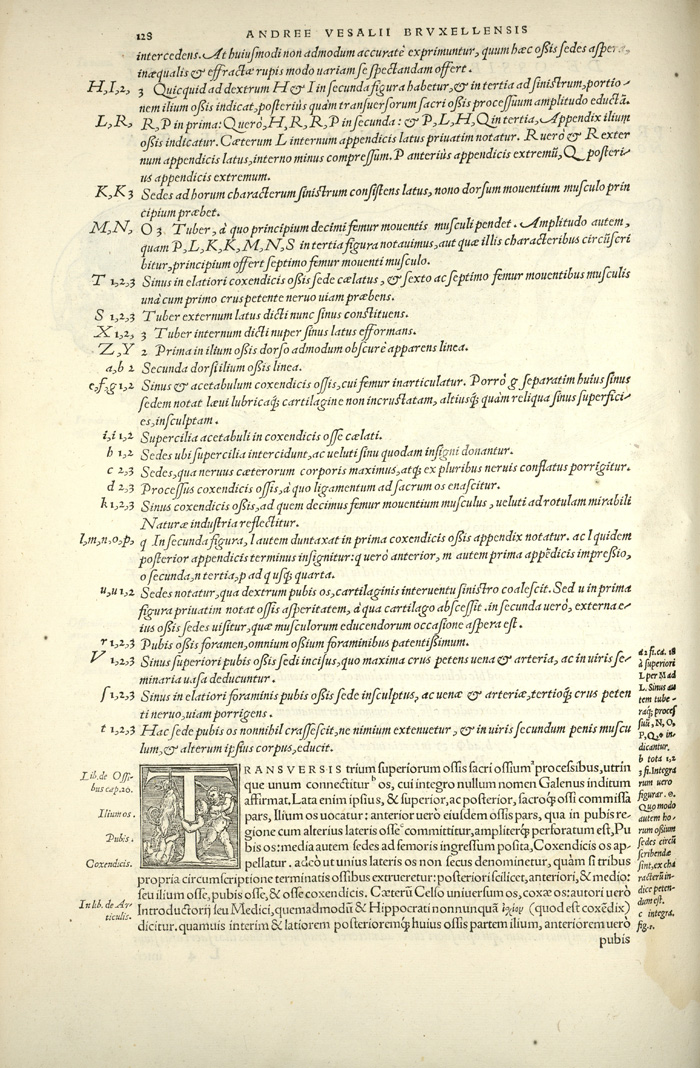 128 ANDREE VESALII BRVXELLENSIS
intercedens. At huiusmodi non admodum accuratè exprimuntur, quum hæc oßis sedes aspera,
inæqualis & effractæ rupis modo uariam se spectandam offert.
H, I, 2, 3 Quicquid ad dextrum H & I in secunda figura habetur, & in tertia ad sinistrum, portio-
nem ilium oßis indicat, posterius quàm transuersorum sacri oßis processuum amplitudo eductã.
L, R, R, P in prima: Q uerò, H, R, R, P in secunda: & P, L, H, Q in tertia, Appendix ilium
oßis indicatur. Cæterum L internum appendicis latus priuatim notatur. R uerò & R exter
num appendicis latus, interno minus compressum. P anterius appendicis extremũ, Q posteri-
us appendicis extremum.
K, K 3 Sedes ad horum characterum sinistrum consistens latus, nono dorsum mouentium musculo prin
cipium præbet.
M, N, O 3. Tuber, à quo principium decimi femur mouentis musculi pendet. Amplitudo autem,
quam P, L, K, K, M, N, S in tertia figura notauimus, aut quæ illis characteribus circũscri
bitur, principium offert septimo femur mouenti musculo.
T 1,2,3 Sinus in elatiori coxendicis oßis sede cælatus, & sexto ac septimo femur mouentibus musculis
unà cum primo crus petente neruo uiam præbens.
S 1,2,3 Tuber externum latus dicti nunc sinus constituens.
X 1,2, 3 Tuber internum dicti nuper sinus latus efformans.
Z, Y 2 Prima in ilium oßis dorso admodum obscurè apparens linea.
a, b 2 Secunda dorsi ilium oßis linea.
e, f, g 1,2 Sinus & acetabulum coxendicis ossis, cui femur inarticulatur. Porrò g separatim huius sinus
sedem notat læui lubricaq́; cartilagine non incrustatam, altiusq́; quàm reliqua sinus superfici-
es, insculptam.
i, i 1,2 Supercilia acetabuli in coxendicis osse cælati.
h 1,2 Sedes ubi supercilia intercidunt, ac ueluti sinu quodam insigni donantur.
c 2,3 Sedes, qua neruus cæterorum corporis maximus, atq́; ex pluribus neruis conflatus porrigitur.
d 2,3 Processus coxendicis ossis, à quo ligamentum ad sacrum os enascitur.
k 1,2,3 Sinus coxendicis oßis, ad quem decimus femur mouentium musculus, ueluti ad rotulam mirabili
Naturæ industria reflectitur.
l, m, n, o, p, q In secunda figura, l autem duntaxat in prima coxendicis oßis appendix notatur. ac l quidem
posterior appendicis terminus insignitur: q uerò anterior, m autem prima appẽdicis impreßio,
o secunda, n tertia, p ad q usq́; quarta.
u, u 1,2 Sedes notatur, qua dextrum pubis os, cartilaginis interuentu sinistro coalescit. Sed u in prima
figura priuatim notat ossis asperitatem, à qua cartilago abscessit. in secunda uerò, externa e-
ius oßis sedes uisitur, quæ musculorum educendorum occasione aspera est.
r 1,2,3 Pubis oßis foramen, omnium oßium foraminibus patentißimum.
V 1,2,3 Sinus superiori pubis oßis sedi incisus, quo maxima crus petens uena & arteria, ac in uiris se-
minaria uasa deducuntur.
ſ 1,2,3 Sinus in elatiori foraminis pubis oßis sede insculptus, ac uenæ & arteriæ, tertioq́; crus peten
ti neruo, uiam porrigens.
t 1,2,3 Hac sede pubis os nonnihil crassescit, ne nimium extenuetur, & in uiris secundum penis muscu
lum, & alterum ipsius corpus, educit.
TRANSVERSIS trium superiorum ossis sacri ossium a processibus, utrin
que unum connectitur b os, cui integro nullum nomen Galenus inditum
affirmat. Lata enim ipsius, & superior, ac posterior, sacroq́; ossi commissa
pars, Ilium os uocatur: anterior uerò eiusdem ossis pars, qua in pubis re-
gione cum alterius lateris osse c committitur, ampliterq́; perforatum est, Pu
bis os: media autem sedes ad femoris ingressum posita, Coxendicis os ap-
pellatur. adeò ut unius lateris os non secus denominetur, quàm si tribus
propria circumscriptione terminatis ossibus extrueretur: posteriori scilicet, anteriori, & medio:
seu ilium osse, pubis osse, & osse coxendicis. Cæterũ Celso uniuersum os, coxæ os: autori uerò
Introductorij seu Medici, quemadmodũ & Hippocrati nonnunquã ἰσχίον (quod est coxẽdix)
dicitur. quamuis interim & latiorem posterioremq́; huius ossis partem ilium, anteriorem uerò
pubis
Lib. de Ossi-
bus cap. 20.
Ilium os.
Pubis.
Coxendicis.
In lib. de Ar-
ticulis.
a 2 fi. ca. 18
à superiori
L per M ad
L. Sinus au
tem tube-
raq́; proces
suũ, N, O,
P, Q in-
dicantur.
b tota 1,2
3 fi. Integra
rum uero
figurar.
Quomodo
autem ho-
rum oßium
sedes circũ
scribendæ
sint, ex cha
racterũ in-
dice peten-
dum est.
c integra.
fig.